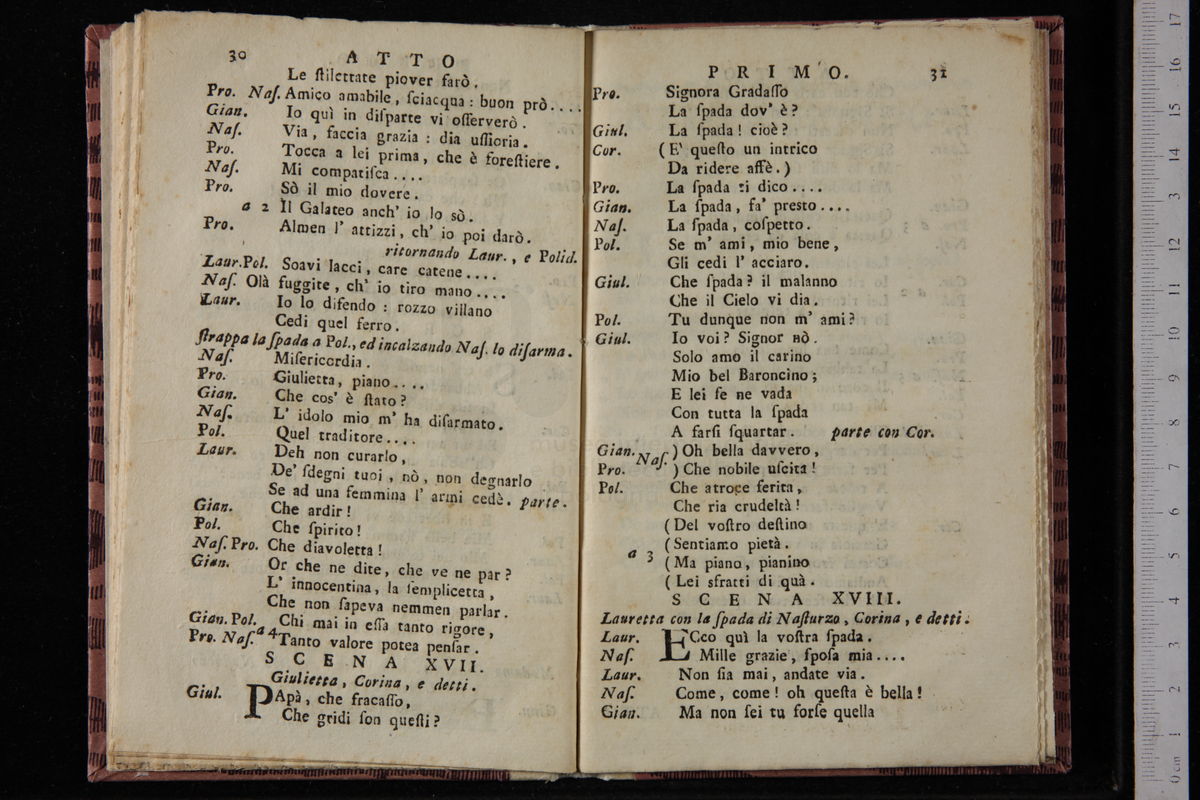 30 ATTO
Le ſtilettate piover farò.
Pro. Naſ. Amico amabile, ſciacqua: buon prò....
Gian. Io quì in diſparte vi oſſerverò.
Naſ. Via, faccia grazia: dia uſſicria.
Pro. Tocca a lei prima, che è foreſtiere.
Naſ. Mi compatiſca....
Pro. Sò il mio dovere.
a 2 Il Galateo anch' io lo sò.
Pro. Almen l' attizzi, ch' io poi darò.
ritornando Laur., e Polid.
Laur. Pol. Soavi lacci, care catene....
Naſ. Olà fuggite, ch' io tiro mano....
Laur. Io lo difendo: rozzo villano
Cedi quel ferro.
ſtrappa la ſpada a Pol., ed incalzando Naſ. lo diſarma.
Naſ. Miſericordia.
Pro. Giulietta, piano....
Gian. Che cos' è ſtato?
Naſ. L' idolo mio m' ha diſarmato.
Pol. Quel traditore....
Laur. Deh non curarlo,
De' ſdegni tuoi, nò, non degnarlo
Se ad una femmina l' armi cedè. parte.
Gian. Che ardir!
Pol. Che ſpirito!
Naſ. Pro. Che diavoletta!
Gian. Or che ne dite, che ve ne par?
L' innocentina, la ſemplicetta,
Che non ſapeva nemmen parlar.
Gian. Pol. Chi mai in eſſa tanto rigore,
Pro. Naſ. a 4 Tanto valore potea penſar.
SCENA XVII.
Giulietta, Corina, e detti.
Giul. PApà, che fracaſſo,
Che gridi ſon queſti?
PRIMO. 31
Pro. Signora Gradaſſo
La ſpada dov' è?
Giul. La ſpada! cioè?
Cor. (E' queſto un intrico
Da ridere affè.)
Pro. La ſpada ti dico....
Gian. La ſpada, fa' presto....
Naſ. La ſpada, coſpetto.
Pol. Se m' ami, mio bene,
Gli cedi l' acciaro.
Giul. Che ſpada? il malanno
Che il Cielo vi dia.
Pol. Tu dunque non m' ami?
Giul. Io voi? Signor nò.
Solo amo il carino
Mio bel Baroncino;
E lei ſe ne vada
Con tutta la ſpada
A farſi ſquartar. parte con Cor.
Gian. Naſ. ) Oh bella davvero,
Pro. ) Che nobile uſcita!
Pol. Che atroce ferita,
Che ria crudeltà!
(Del voſtro deſtino
(Sentiamo pietà.
a 3 (Ma piano, pianino
(Lei sfratti di quà.
SCENA XVIII.
Lauretta con la ſpada di Naſturzo, Corina, e detti.
Laur. ECco quì la voſtra ſpada.
Naſ. Mille grazie, ſpoſa mia....
Laur. Non ſia mai, andate via.
Naſ. Come, come! oh queſta è bella!
Gian. Ma non ſei tu forſe quella
0 cm 1 2 3 4 5 6 7 8 9 10 11 12 13 14 15 16 17